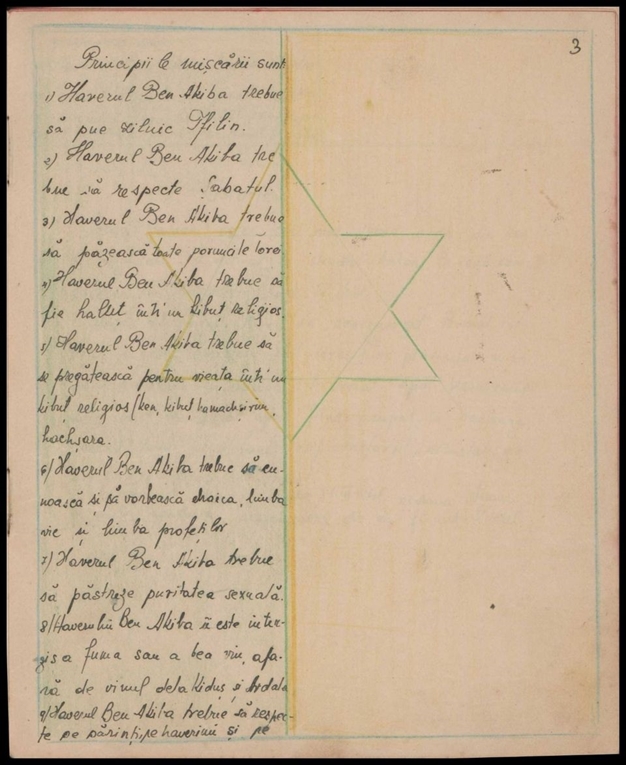 3
Principii B mișcării sunt
1) Haverul Ben Akiba trebue
să pue zilnic Tfilin.
2) Haverul Ben Akiba tre
bue să respecte Șabatul.
3) Haverul Ben Akiba trebue
să păzească toate poruncile Torei
4) Haverul Ben Akiba trebue să
fie haluț într'un kibuț religios.
5) Haverul Ben Akiba trebue să
se pregătească pentru vieața într'un
kibuț religios (ken, kibuț hamachșirim,
hachșara.
6) Haverul Ben Akiba trebue să cu-
noască și să vorbească ebraica, limba
vie și limba profeților
7) Haverul Ben Akiba trebue
să păstreze puritatea sexuală.
8) Haverului Ben Akiba îi este inter-
zis a fuma sau a bea vin, afa-
ră de vinul dela Kiduș și Avdala
9) Haverul Ben Akiba trebue să respec-
te pe părinți, pe haverimi și pe